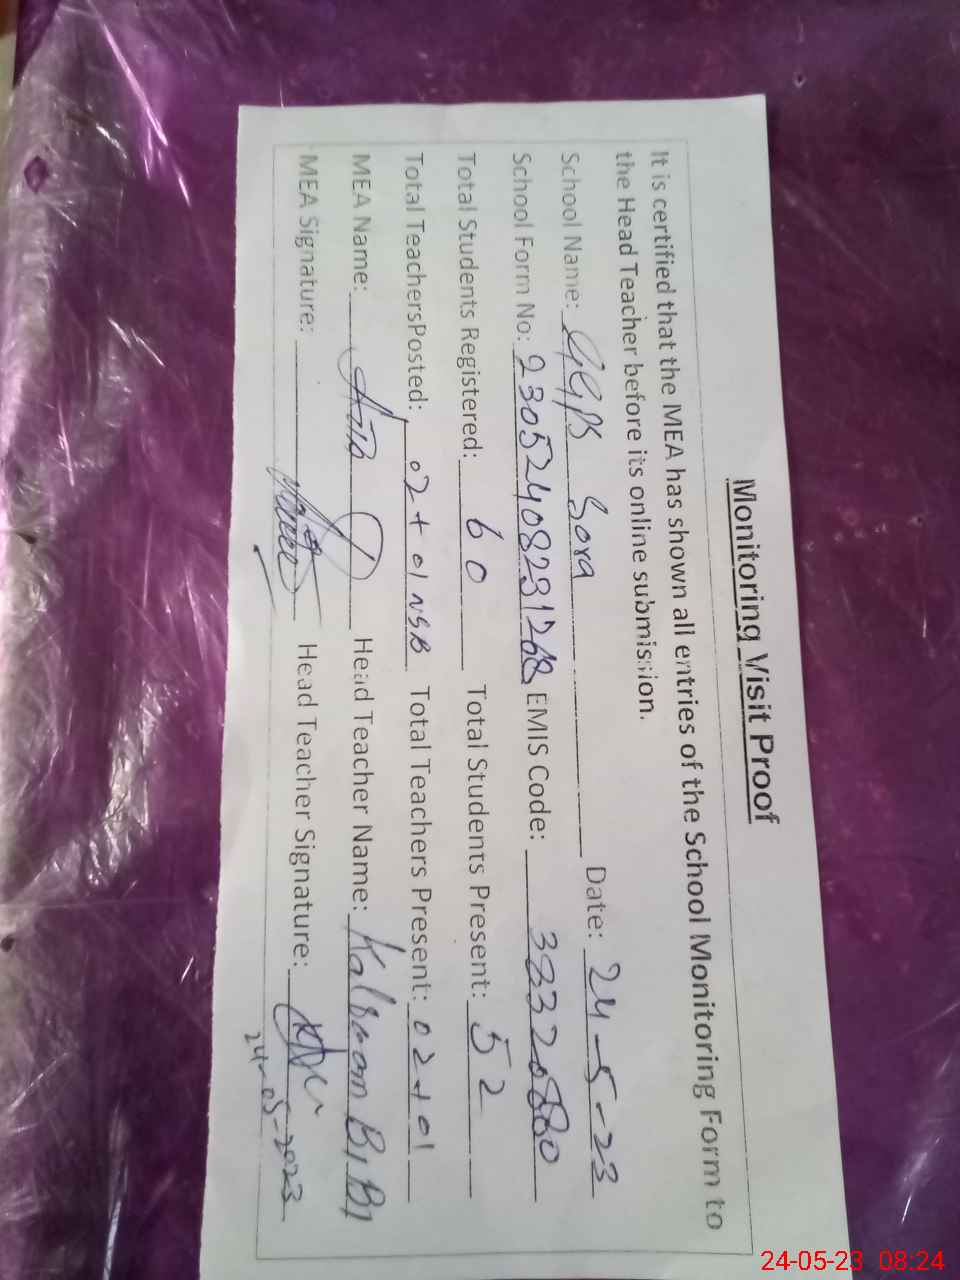 Monitoring Visit Proof
It is certified that the MEA has shown all entries of the School Monitoring Form to
the Head Teacher before its online submission.
School Name: GGPS Sora Date: 24-5-23
School Form No: EMIS Code:
Total Students Registered: 60 Total Students Present: 52
Total TeachersPosted: 02+01 NSB Total Teachers Present: 02+01
MEA Name: Head Teacher Name: Kalsoom BiBi
MEA Signature: Head Teacher Signature:
24-05-2023
24-05-23 08:24